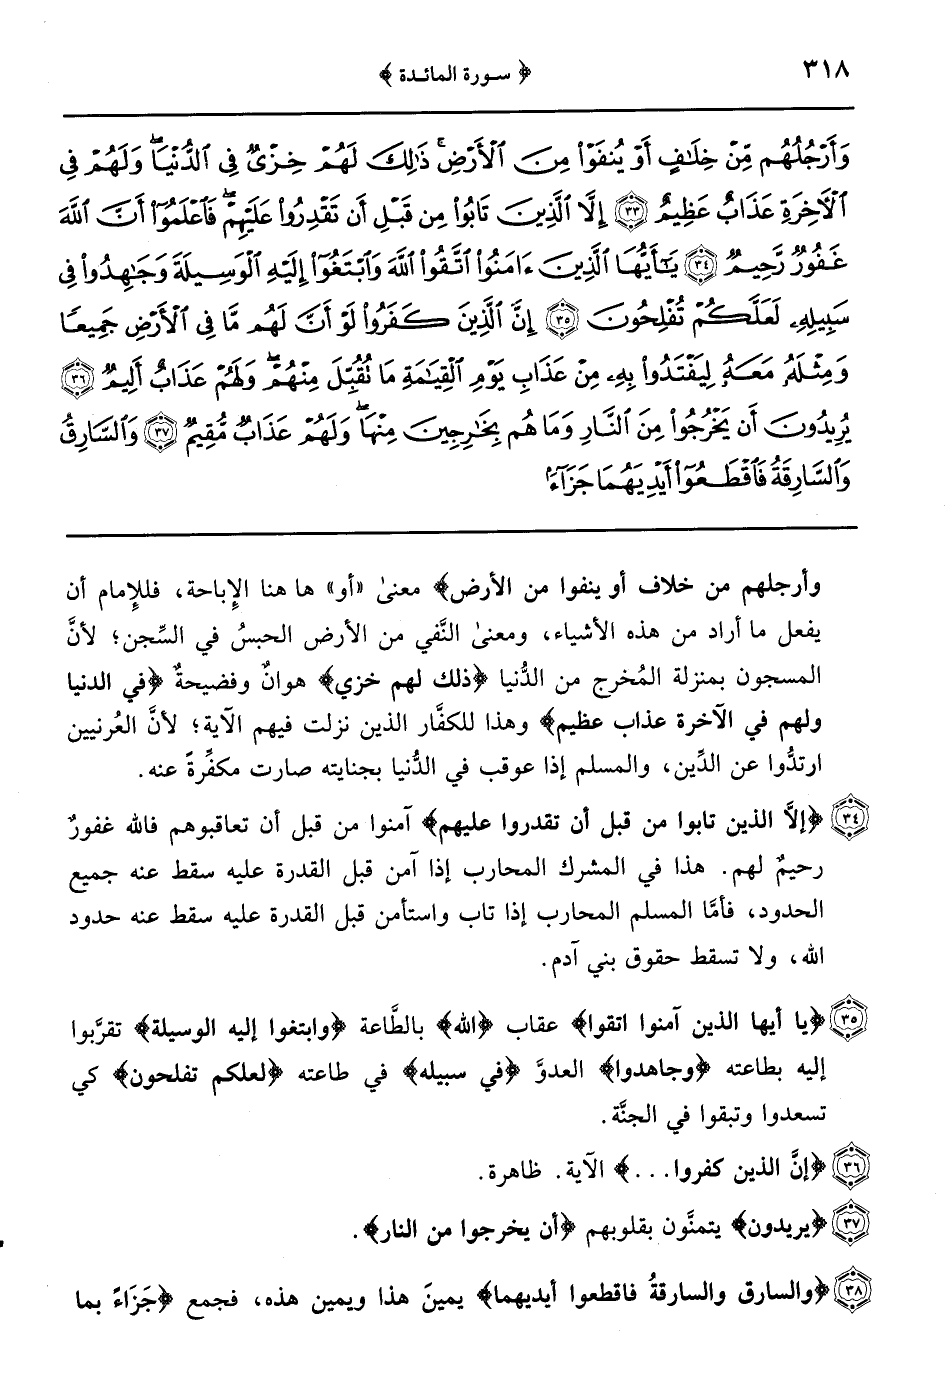 ٣١٨
﴿ سورة المائدة ﴾
وَأَرْجُلُهُم مِّنْ خِلَٰفٍ أَوْ يُنفَوْا۟ مِنَ ٱلْأَرْضِ ۚ ذَٰلِكَ لَهُمْ خِزْىٌ فِى ٱلدُّنْيَا ۖ وَلَهُمْ فِى
ٱلْـَٔاخِرَةِ عَذَابٌ عَظِيمٌ ٣٣ إِلَّا ٱلَّذِينَ تَابُوا۟ مِن قَبْلِ أَن تَقْدِرُوا۟ عَلَيْهِمْ ۖ فَٱعْلَمُوٓا۟ أَنَّ ٱللَّهَ
غَفُورٌ رَّحِيمٌ ٣٤ يَٰٓأَيُّهَا ٱلَّذِينَ ءَامَنُوا۟ ٱتَّقُوا۟ ٱللَّهَ وَٱبْتَغُوٓا۟ إِلَيْهِ ٱلْوَسِيلَةَ وَجَٰهِدُوا۟ فِى
سَبِيلِهِۦ لَعَلَّكُمْ تُفْلِحُونَ ٣٥ إِنَّ ٱلَّذِينَ كَفَرُوا۟ لَوْ أَنَّ لَهُم مَّا فِى ٱلْأَرْضِ جَمِيعًا
وَمِثْلَهُۥ مَعَهُۥ لِيَفْتَدُوا۟ بِهِۦ مِنْ عَذَابِ يَوْمِ ٱلْقِيَٰمَةِ مَا تُقُبِّلَ مِنْهُمْ ۖ وَلَهُمْ عَذَابٌ أَلِيمٌ ٣٦
يُرِيدُونَ أَن يَخْرُجُوا۟ مِنَ ٱلنَّارِ وَمَا هُم بِخَٰرِجِينَ مِنْهَا ۖ وَلَهُمْ عَذَابٌ مُّقِيمٌ ٣٧ وَٱلسَّارِقُ
وَٱلسَّارِقَةُ فَٱقْطَعُوٓا۟ أَيْدِيَهُمَا جَزَآءًۢ
وأرجلهم من خلاف أو ينفوا من الأرض﴾ معنىٰ «أو» ها هنا الإِباحة، فللإِمام أن
يفعل ما أراد من هذه الأشياء، ومعنىٰ النَّفي من الأرض الحبسُ في السِّجن؛ لأنَّ
المسجون بمنزلة المُخرج من الدُّنيا ﴿ذلك لهم خزي﴾ هوانٌ وفضيحةٌ ﴿في الدنيا
ولهم في الآخرة عذاب عظيم﴾ وهذا للكفَّار الذين نزلت فيهم الآية؛ لأنَّ العُرنيين
ارتدُّوا عن الدِّين، والمسلم إذا عوقب في الدُّنيا بجنايته صارت مكفِّرةً عنه.
٣٤ ﴿إلاَّ الذين تابوا من قبل أن تقدروا عليهم﴾ آمنوا من قبل أن تعاقبوهم فالله غفورٌ
رحيمٌ لهم. هذا في المشرك المحارب إذا آمن قبل القدرة عليه سقط عنه جميع
الحدود، فأمَّا المسلم المحارب إذا تاب واستأمن قبل القدرة عليه سقط عنه حدود
الله، ولا تسقط حقوق بني آدم.
٣٥ ﴿يا أيها الذين آمنوا اتقوا﴾ عقاب ﴿الله﴾ بالطَّاعة ﴿وابتغوا إليه الوسيلة﴾ تقرَّبوا
إليه بطاعته ﴿وجاهدوا﴾ العدوَّ ﴿في سبيله﴾ في طاعته ﴿لعلكم تفلحون﴾ كي
تسعدوا وتبقوا في الجنَّة.
٣٦ ﴿إنَّ الذين كفروا...﴾ الآية. ظاهرة.
٣٧ ﴿يريدون﴾ يتمنَّون بقلوبهم ﴿أن يخرجوا من النار﴾.
٣٨ ﴿والسارق والسارقةُ فاقطعوا أيديهما﴾ يمينَ هذا ويمين هذه، فجمع ﴿جَزَاءً بما